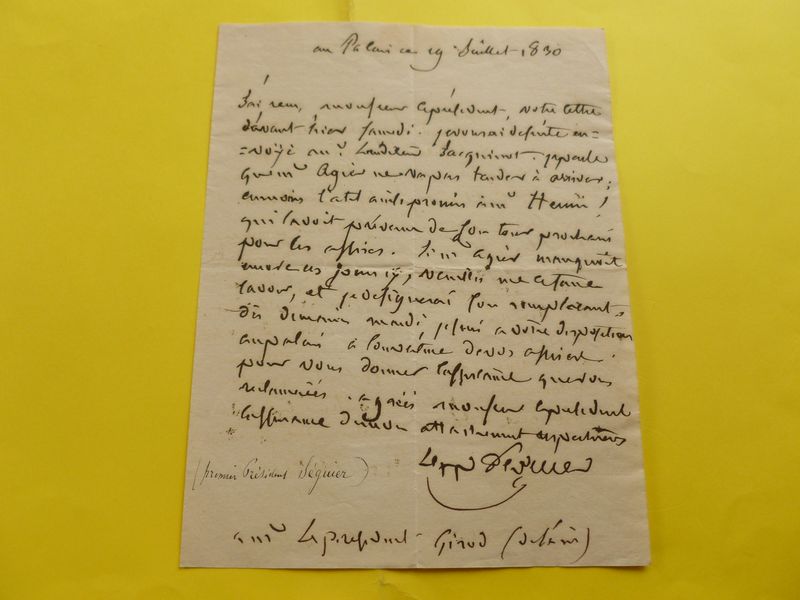 au Palais ce 19 Juillet 1830
J'ai reçu, monsieur le président, votre lettre
d'avant hier Samedi. je vous ai de suite en=
=voyé mr. l'auditeur Jacquinot.
que mr Agier ne va pas tarder à arriver;
du moins l'a-t-il ainsi promis à mr Henin !
qui l'avoit prévenu de son tour prochain
pour les assises. Si mr agier manquoit
encore ces jours ci, veuillez me le faire
savoir, et je désignerai son remplaçant.
dès demain mardi, je suis à votre disposition
au palais à l'ouverture de vos assises
pour vous donner que vous
réclamerez. agréez monsieur le président
l'assurance de mon attachement respectueux
Le pp Séguier
(premier Président Séguier)
a mr Le président Girod (de l'ain)